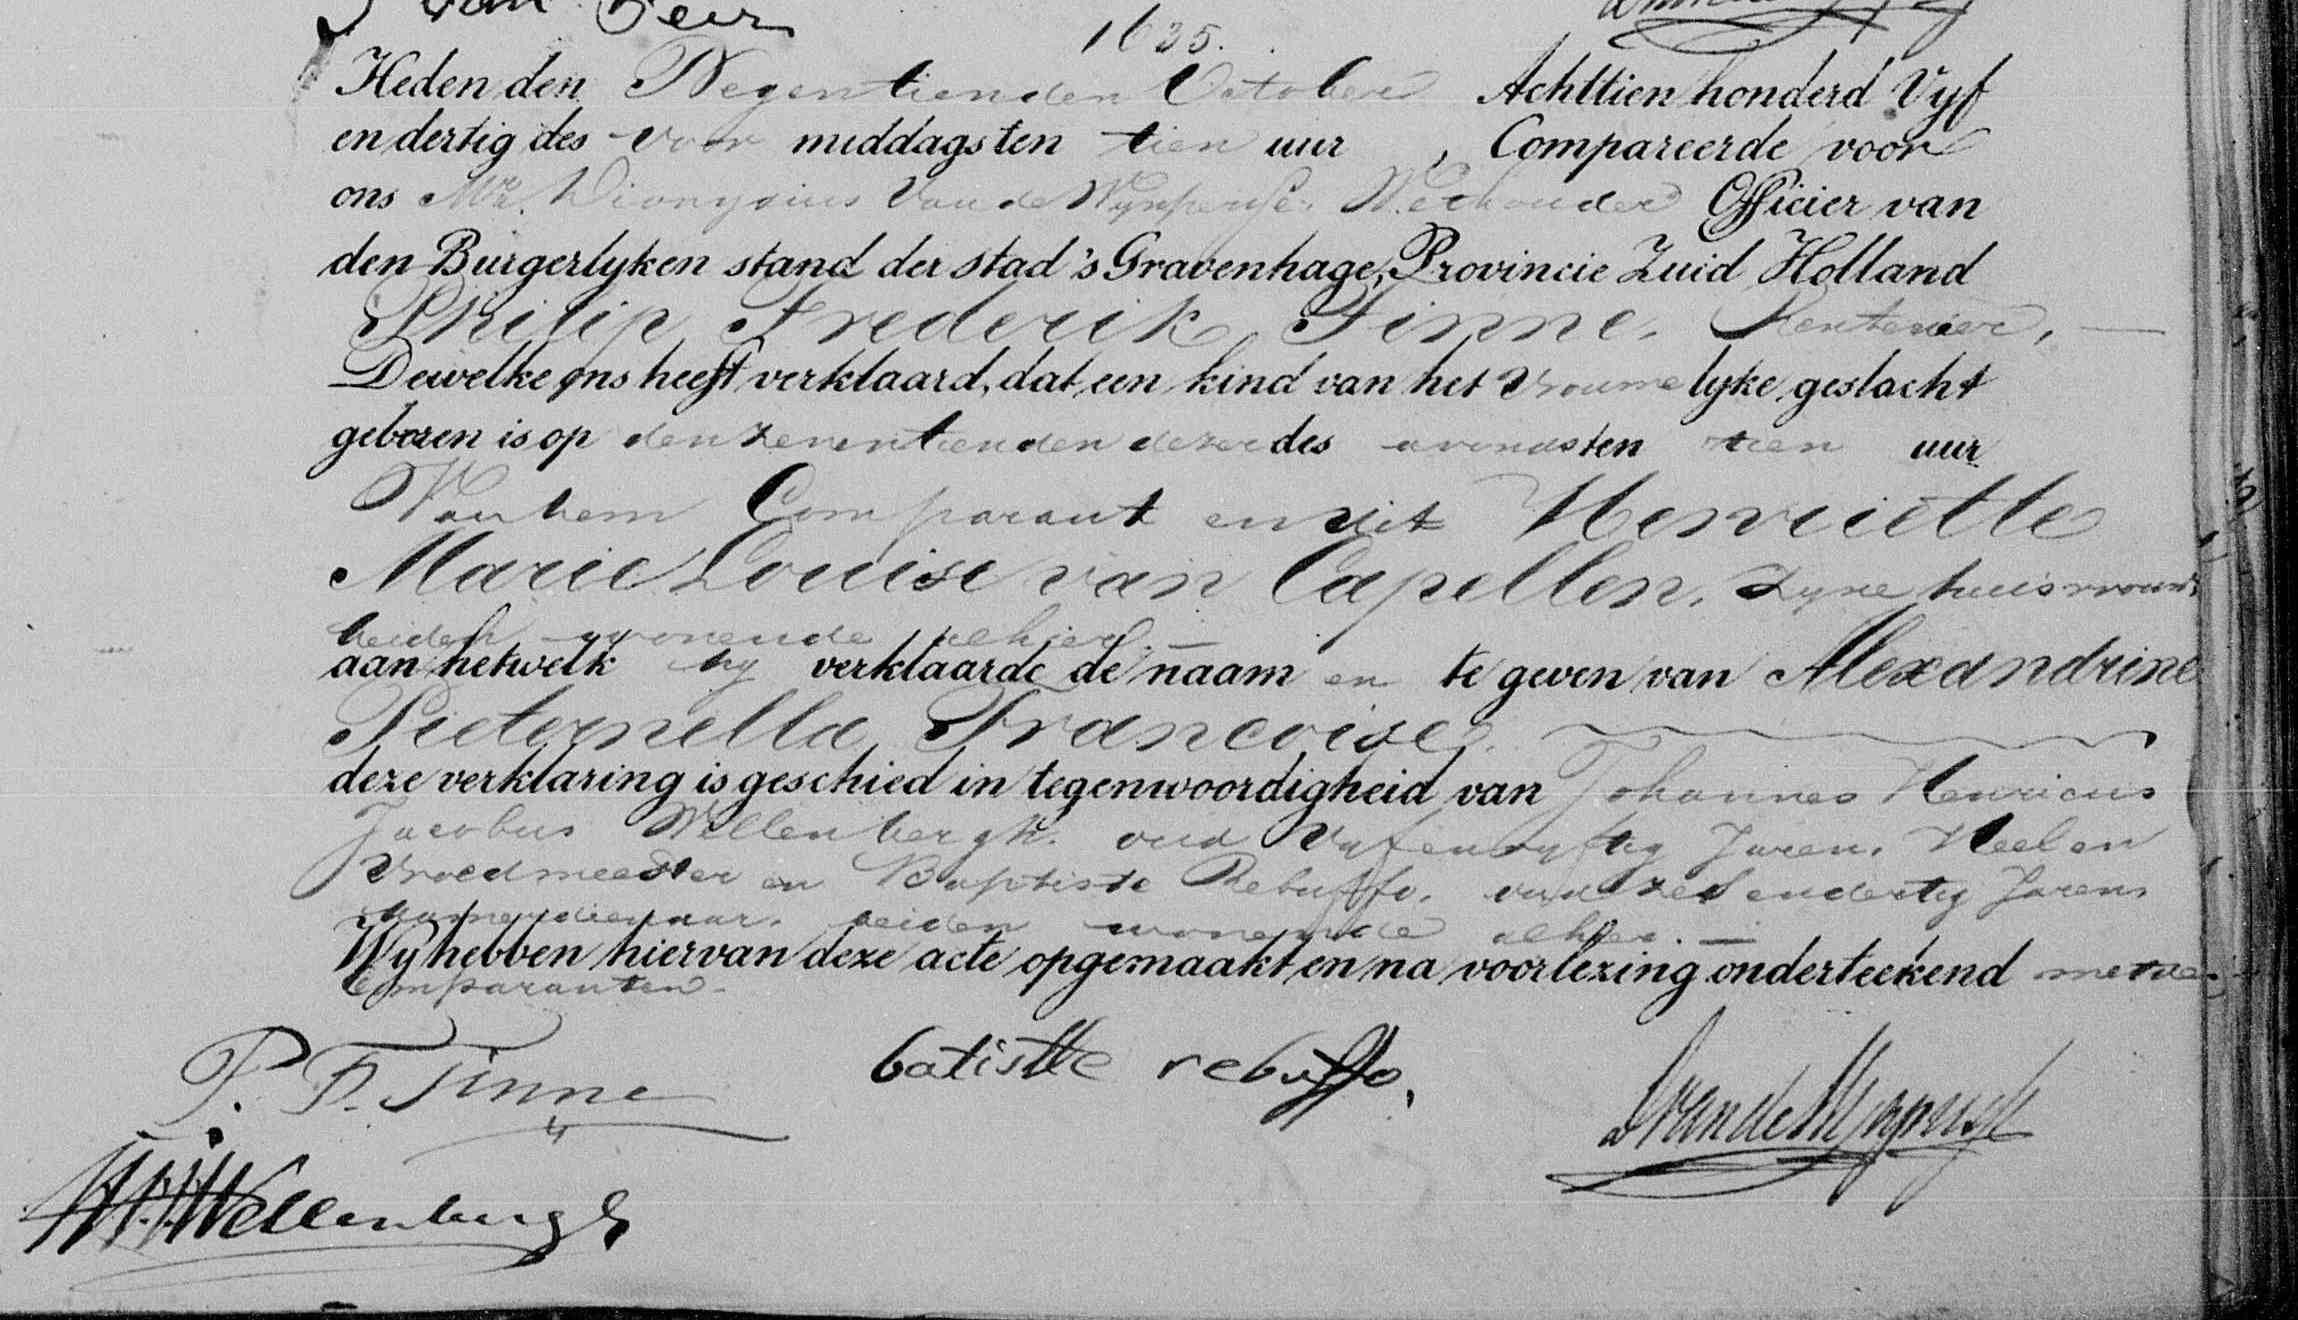 van Peer
1635.
Heden den Negentienden October Achttien honderd Vyf
en dertig des voor middags ten tien uur, Compareerde voor
ons Mr. Dionysius Van de Wynpersse. Wethouder Officier van
den Burgerlyken stand der stad 's Gravenhage, Provincie Zuid Holland
Philip Frederik Tinne, Rentenier, —
Dewelke ons heeft verklaard, dat een kind van het Vrouwelyke geslacht
geboren is op den zeventienden dezer des avonds ten tien uur
Van hem Comparant en uit Henriette
Marie Louise van Capellen, Zyne huisvrouw,
beiden wonende alhier. —
aan hetwelk hy verklaarde de naam en te geven van Alexandrine
Pieternella Francoise.
deze verklaring is geschied in tegenwoordigheid van Johannes Henricus
Jacobus Wellenbergh. oud Vyfenvyftig Jaren. Heel en
Vroedmeester en Baptiste Rebuffo. oud zes en dertig Jaren
Kamerdienaar. beiden wonende alhier. —
Wy hebben hiervan deze acte opgemaakt en na voorlezing onderteekend met de
Comparanten.
P. F. Tinne
batistte rebuffo,
D van de Wynpersse
Wellenbergh